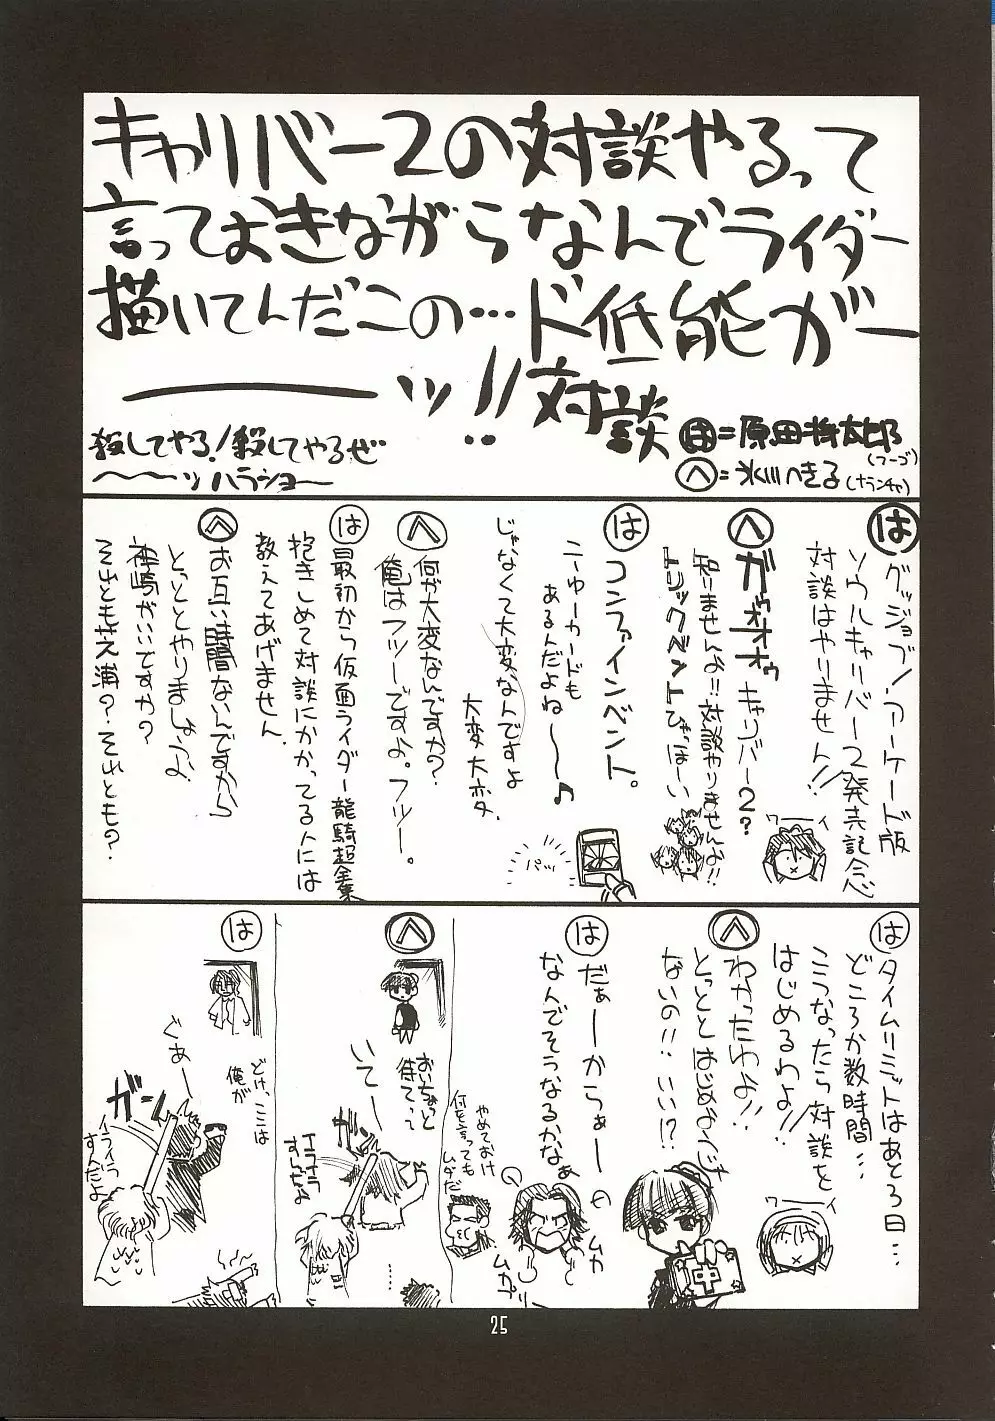 キャリバー2の対談やるって
言っておきながらなんでライダー
描いてんだこの…ド低能がー
━━━ッ!!対談
殺してやる!殺してやるぜ
〜〜〜ッハラショー
は=原田将太郎
(フーゴ)
へ=氷川へきる(ナランチャ)
は
グッジョブ!アーケード版
ソウルキャリバー2発売記念
対談はやりません!!
ワーイ
へ
ガゥオオオゥ
キャリバー2?
知りませんよ!!対談やりませんよ!!
トリックベントひゃほーい
は
コンファインベント。
ニューカードも
あるんだよね〜〜♪
じゃなくて大変なんですよ
大変大変
パッ
へ
何が大変なんですか?
俺はフツーですよ。フツー。
は
最初から仮面ライダー龍騎超全集
抱きしめて対談にかかってる人には
教えてあげません
へ
お互い時間ないんですから
とっととやりましょうよ
神崎がいいですか?
それとも芝浦?それとも?
は
タイムリミットはあと3日…
どころか数時間…
こうなったら対談を
はじめるわよ!!
ワーイ
へ
わかったわよ!!
とっととはじめようじゃ
ないの!!いい!?
中
は
だぁーーからぁーー
なんでそうなるかなぁ
ムカ
ムカプリ
やめておけ
何を言っても
ムダだ
へ
おいちょっと
待て…
いてー
イライラ
すんだよ
は
どけ、ここは
俺が
ぐぁーー
ガン
イライラ
すんだよ
25